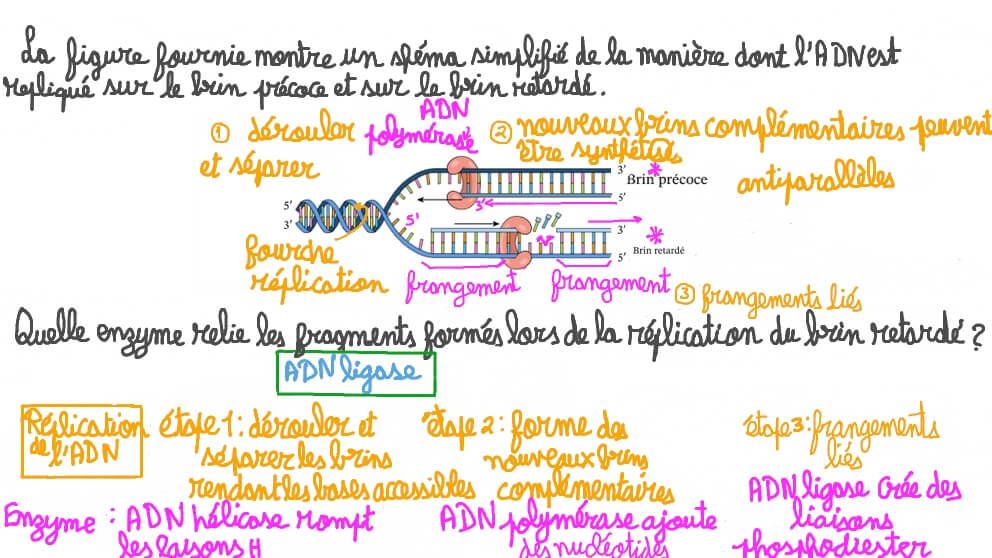 La figure fournie montre un shéma simplifié de la manière dont l'ADN est
repliqué sur le brin précoce et sur le brin retardé.
ADN
polymérase
① dérouler
et séparer
② nouveaux brins complémentaires peuvent
être synthétisés
antiparallèles
3'
Brin précoce
5'
3'
5'
3'
5'
3'
Brin retardé
5'
fourche
réplication
frangement
frangement
③ frangements liés
Quelle enzyme relie les fragments formés lors de la réplication du brin retardé ?
ADN ligase
Réplication
de l'ADN
étape 1 : dérouler et
séparer les brins
rendant les bases accessibles
étape 2 : forme des
nouveaux brins
complémentaires
étape 3 : frangements
liés
Enzyme : ADN hélicase rompt
les laisons H
ADN polymérase ajoute
des nucléotides
ADN ligase crée des
liaisons
phosphodiester